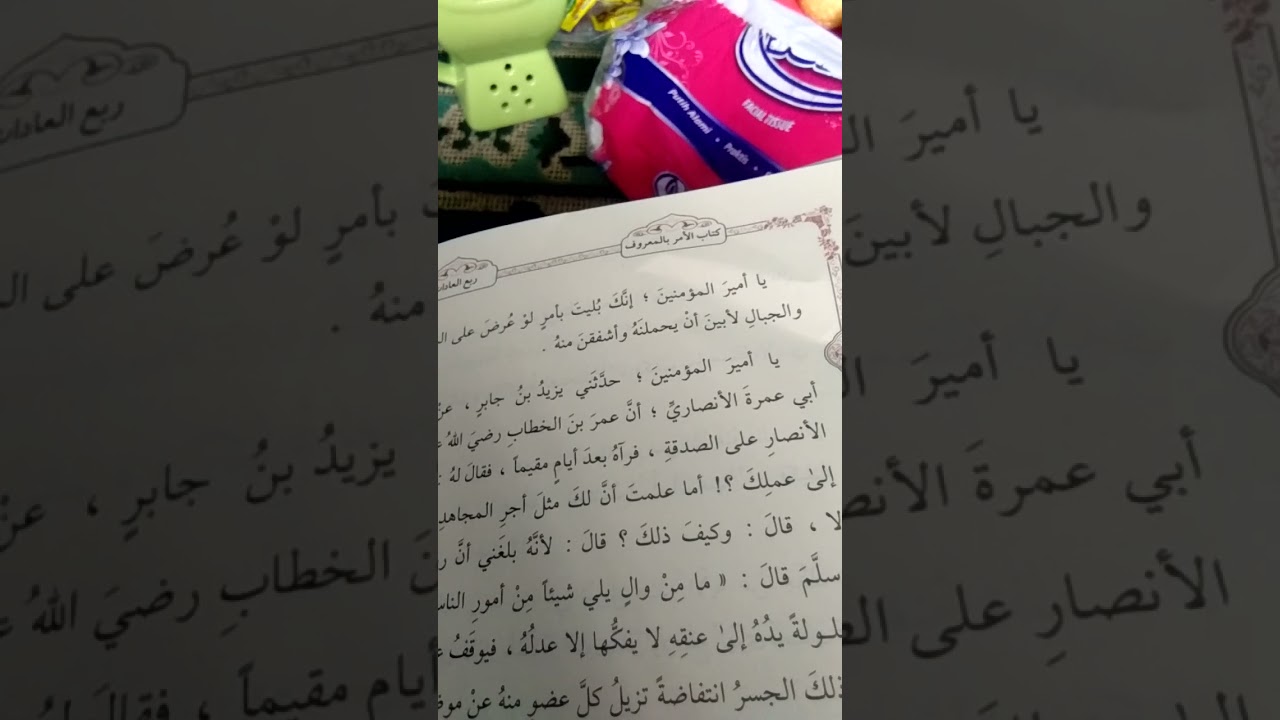 Putih Alami • Praktis •
FACIAL TISSUE
كتاب الأمر بالمعروف
ربع العادات
يا أميرَ المؤمنينَ ؛ إنَّكَ بُليتَ بأمرٍ لوْ عُرضَ على
والجبالِ لأبينَ أنْ يحملنَهُ وأشفقنَ منهُ .
يا أميرَ المؤمنينَ ؛ حدَّثَني يزيدُ بنُ جابرٍ ، عنْ
أبي عمرةَ الأنصاريِّ ؛ أنَّ عمرَ بنَ الخطابِ رضيَ اللهُ
الأنصارِ على الصدقةِ ، فرآهُ بعدَ أيامٍ مقيماً ، فقالَ لهُ :
إلىٰ عملِكَ ؟! أما علمتَ أنَّ لكَ مثلَ أجرِ
لا ، قالَ : وكيفَ ذلكَ ؟ قالَ : لأنَّهُ بلغَني أنَّ
سلَّمَ قالَ : « ما مِنْ والٍ يلي شيئاً مِنْ أمورِ
يدُهُ إلىٰ عنقِهِ لا يفكُّها إلا عدلُهُ ، فيوقَفُ
ذلكَ الجسرُ انتفاضةً تزيلُ كلَّ عضوٍ منهُ عنْ